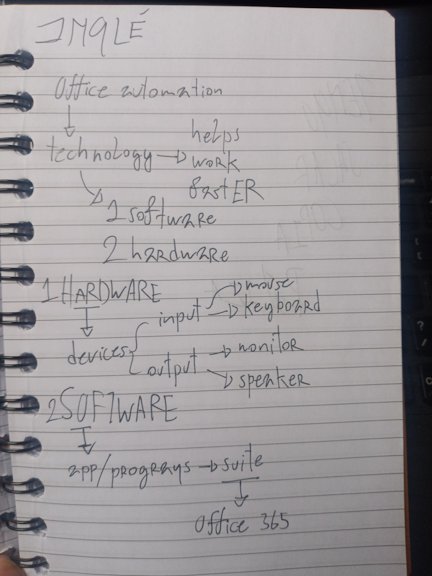 INGLÉ
Office automation
↓
technology → helps
work
fastER
1 software
2 hardware
1 HARDWARE
input → mouse
→ keyboard
devices
output → monitor
→ speaker
2 SOFTWARE
app/programs → suite
Office 365